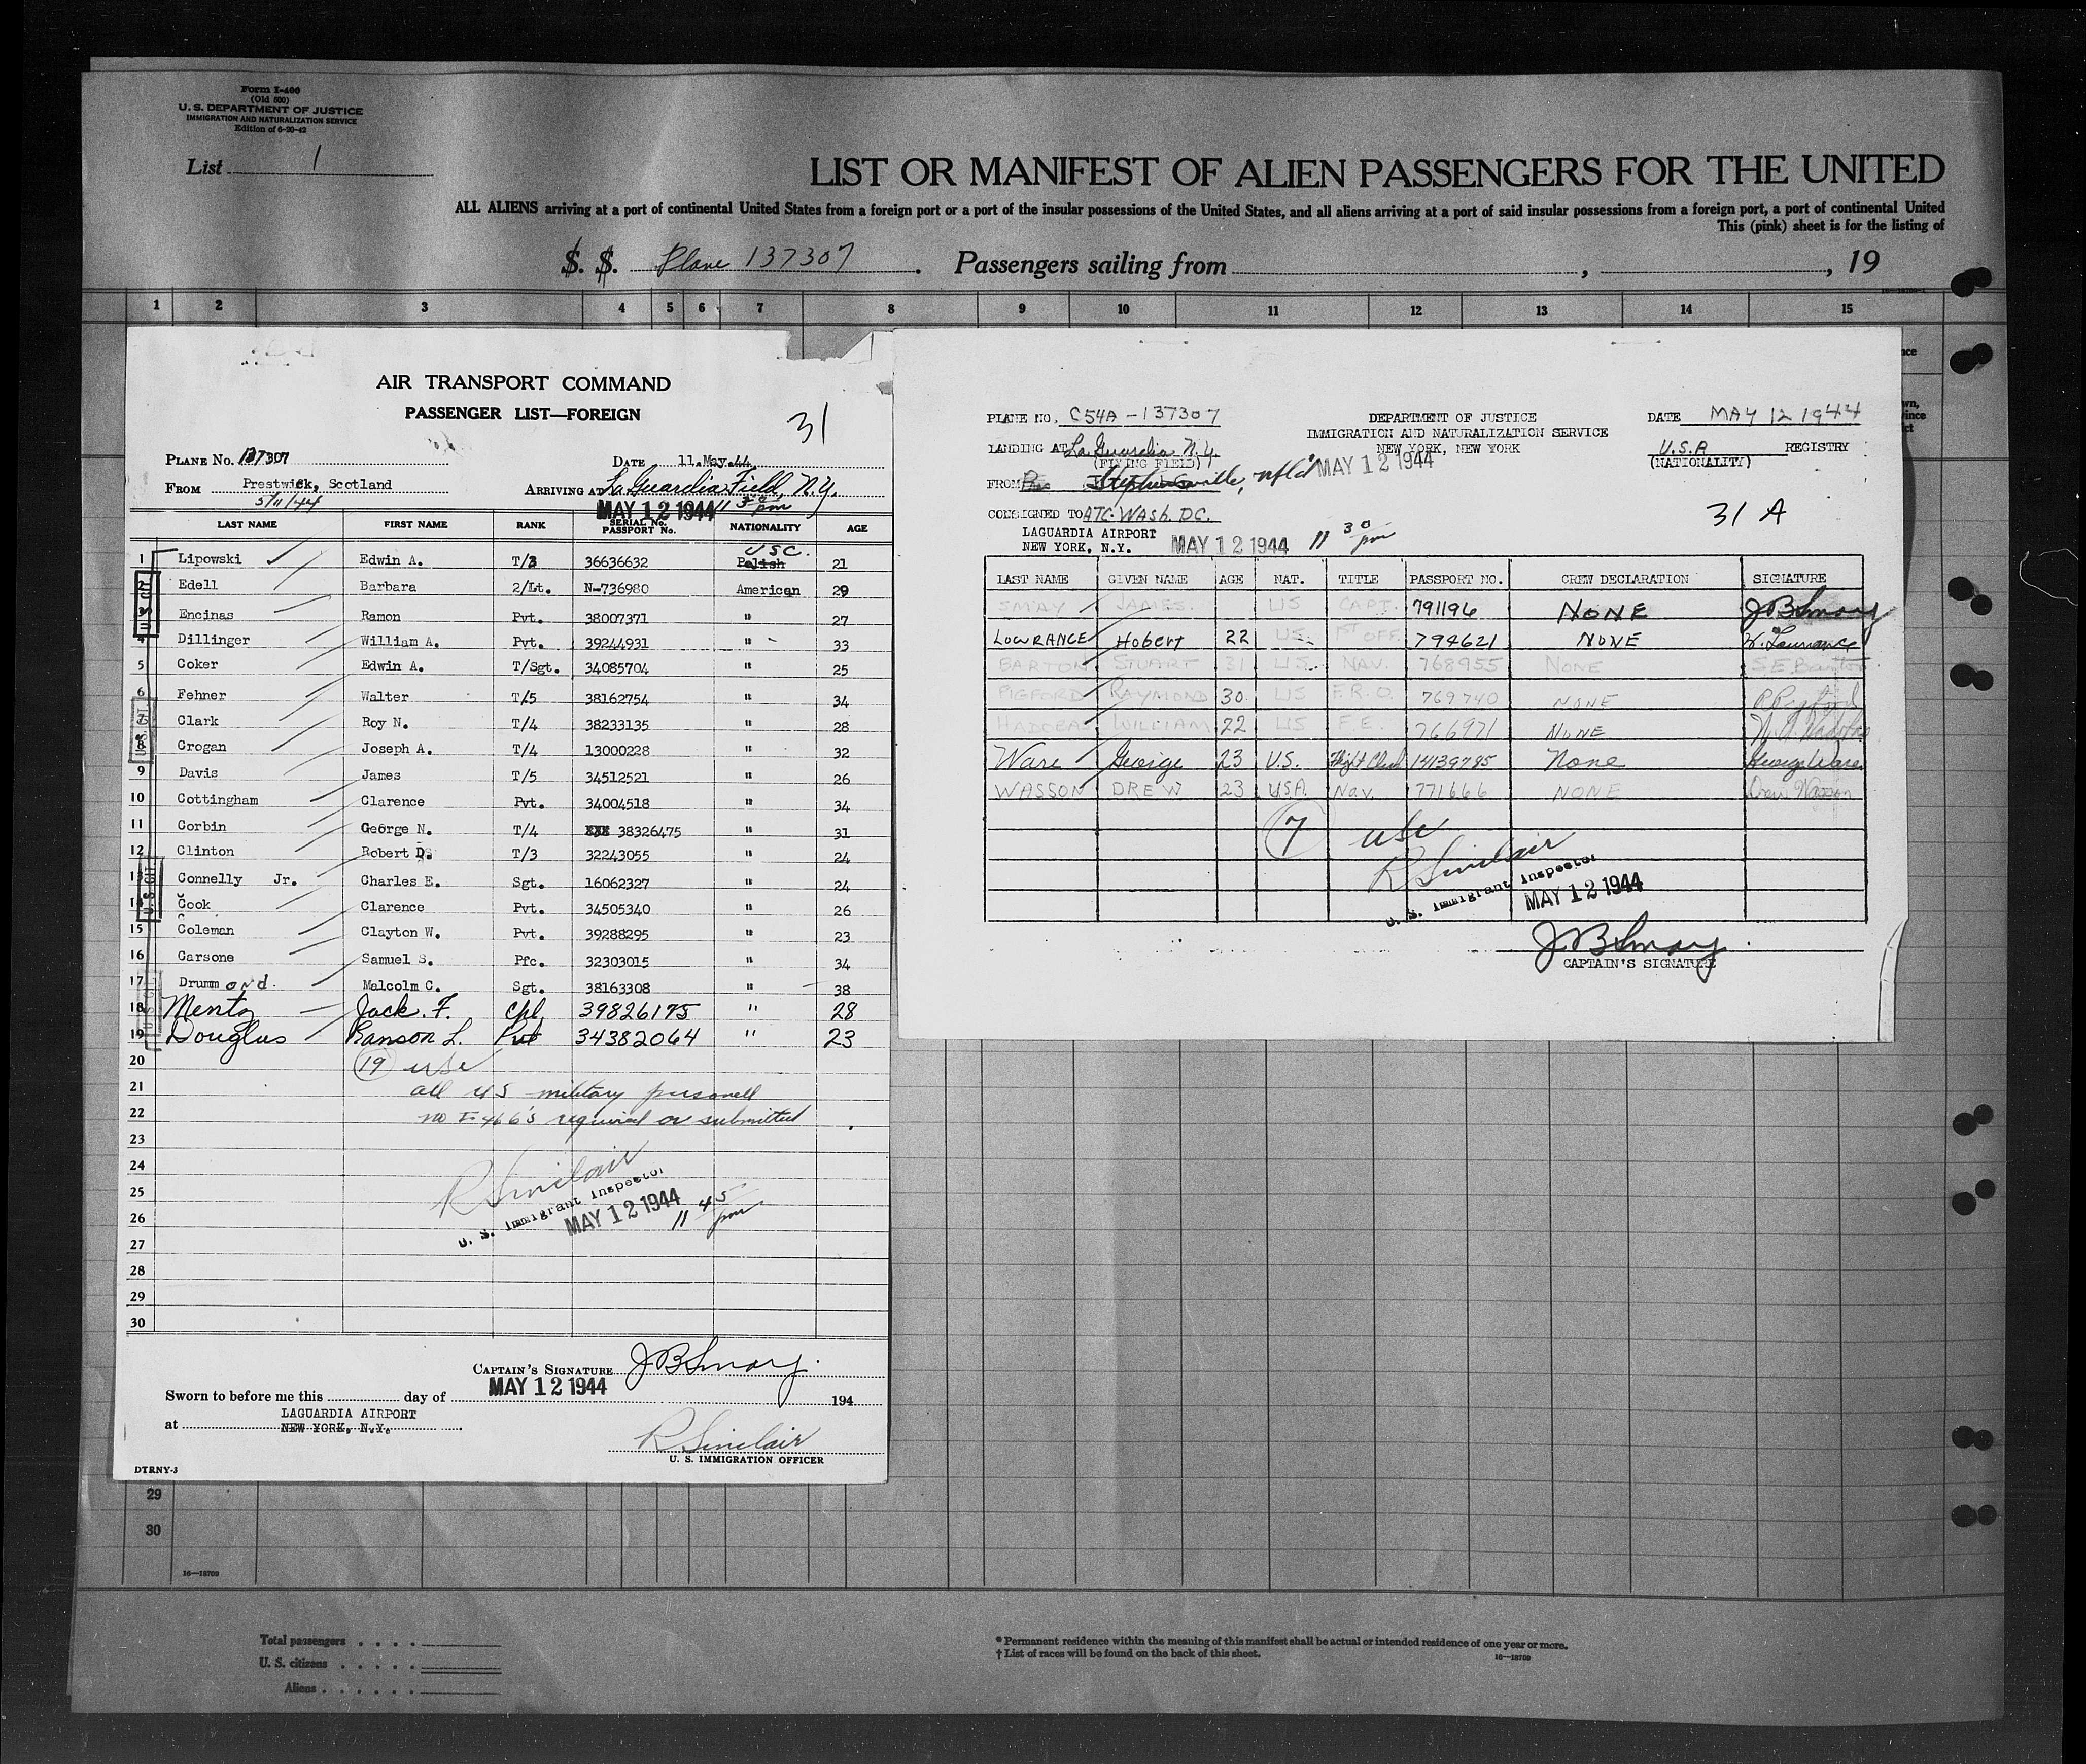 Form I-400
(Old 500)
U. S. DEPARTMENT OF JUSTICE
IMMIGRATION AND NATURALIZATION SERVICE
Edition of 6-20-42
List 1
LIST OR MANIFEST OF ALIEN PASSENGERS FOR THE UNITED
ALL ALIENS arriving at a port of continental United States from a foreign port or a port of the insular possessions of the United States, and all aliens arriving at a port of said insular possessions from a foreign port, a port of continental United
This (pink) sheet is for the listing of
S. S. Plane 137307 . Passengers sailing from , , 19
1 2 3 4 5 6 7 8 9 10 11 12 13 14 15
AIR TRANSPORT COMMAND
PASSENGER LIST—FOREIGN
31
PLANE No. 137307 DATE 11.May.44.
FROM Prestwick, Scotland ARRIVING AT La Guardia Field, N.Y.
5/11/44 MAY 12 1944 11 30 pm
LAST NAME FIRST NAME RANK SERIAL No. PASSPORT No. NATIONALITY AGE
1 Lipowski Edwin A. T/3 36636632 Polish USC. 21
2 Edell Barbara 2/Lt. N-736980 American 29
3 Encinas Ramon Pvt. 38007371 " 27
4 Dillinger William A. Pvt. 39244931 " 33
5 Coker Edwin A. T/Sgt. 34085704 " 25
6 Fehner Walter T/5 38162754 " 34
7 Clark Roy N. T/4 38233135 " 28
8 Crogan Joseph A. T/4 13000228 " 32
9 Davis James T/5 34512521 " 26
10 Cottingham Clarence Pvt. 34004518 " 34
11 Corbin George N. T/4 XXX 38326475 " 31
12 Clinton Robert D. T/3 32243055 " 24
13 Connelly Jr. Charles E. Sgt. 16062327 " 24
14 Cook Clarence Pvt. 34505340 " 26
15 Coleman Clayton W. Pvt. 39288295 " 23
16 Garsone Samuel S. Pfc. 32303015 " 34
17 Drummond. Malcolm C. Sgt. 38163308 " 38
18 Mentz Jack. F. Cpl 39826175 " 28
19 Douglas Ranson L. Pvt 34382064 " 23
20 (19) USC
21 all US military personell
22 no I-466's required or submitted
23
24
25 R Sinclair
U. S. Immigrant Inspector
26 MAY 12 1944 11 45 pm
27
28
29
30
CAPTAIN'S SIGNATURE J B Smay.
Sworn to before me this day of MAY 12 1944 194
at LAGUARDIA AIRPORT
NEW YORK, N.Y.
R Sinclair
U. S. IMMIGRATION OFFICER
DTRNY-3
PLANE NO. C54A-137307 DEPARTMENT OF JUSTICE DATE MAY 12 1944
IMMIGRATION AND NATURALIZATION SERVICE
LANDING AT La Guardia N.Y. NEW YORK, NEW YORK U.S.A REGISTRY
(FLYING FIELD) MAY 12 1944 (NATIONALITY)
FROM Stephenville, nfld
CONSIGNED TO ATC-WASh. D.C. 31 A
LAGUARDIA AIRPORT
NEW YORK, N.Y. MAY 12 1944 11 30 pm
LAST NAME GIVEN NAME AGE NAT. TITLE PASSPORT NO. CREW DECLARATION SIGNATURE
SMAY JAMES. US CAPT. 791196 NONE J B Smay
LOWRANCE Hobert 22 US. 1ST OFF. 794621 NONE H. Lowrance
BARTON STUART 31 U.S. NAV. 768955 NONE S.E. Barton
PIGFORD RAYMOND 30. US F.R.O. 769740 NONE R Pigford
HADOBAS WILLIAM 22 US F.E. 766971 NONE
Ware George 23 U.S. Flight Clerk 14139785 None George Ware
WASSON DREW 23 USA. Nav. 771666 NONE Drew Wasson
(7) USC
R Sinclair
U. S. Immigrant Inspector
MAY 12 1944
J B Smay.
CAPTAIN'S SIGNATURE
29
30
16—18700
Total passengers
U. S. citizens
Aliens
* Permanent residence within the meaning of this manifest shall be actual or intended residence of one year or more.
† List of races will be found on the back of this sheet.
16—18700